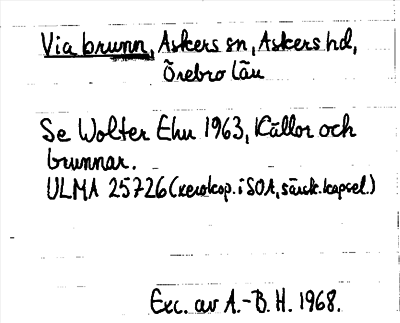 Via brunn, Askers sn, Askers hd,
Örebro län
Se Wolter Ehn 1963, Källor och
brunnar.
ULMA 25726 (xerokop. i SOA, särsk. kapsel.)
Exc. av A.-B. H. 1968.